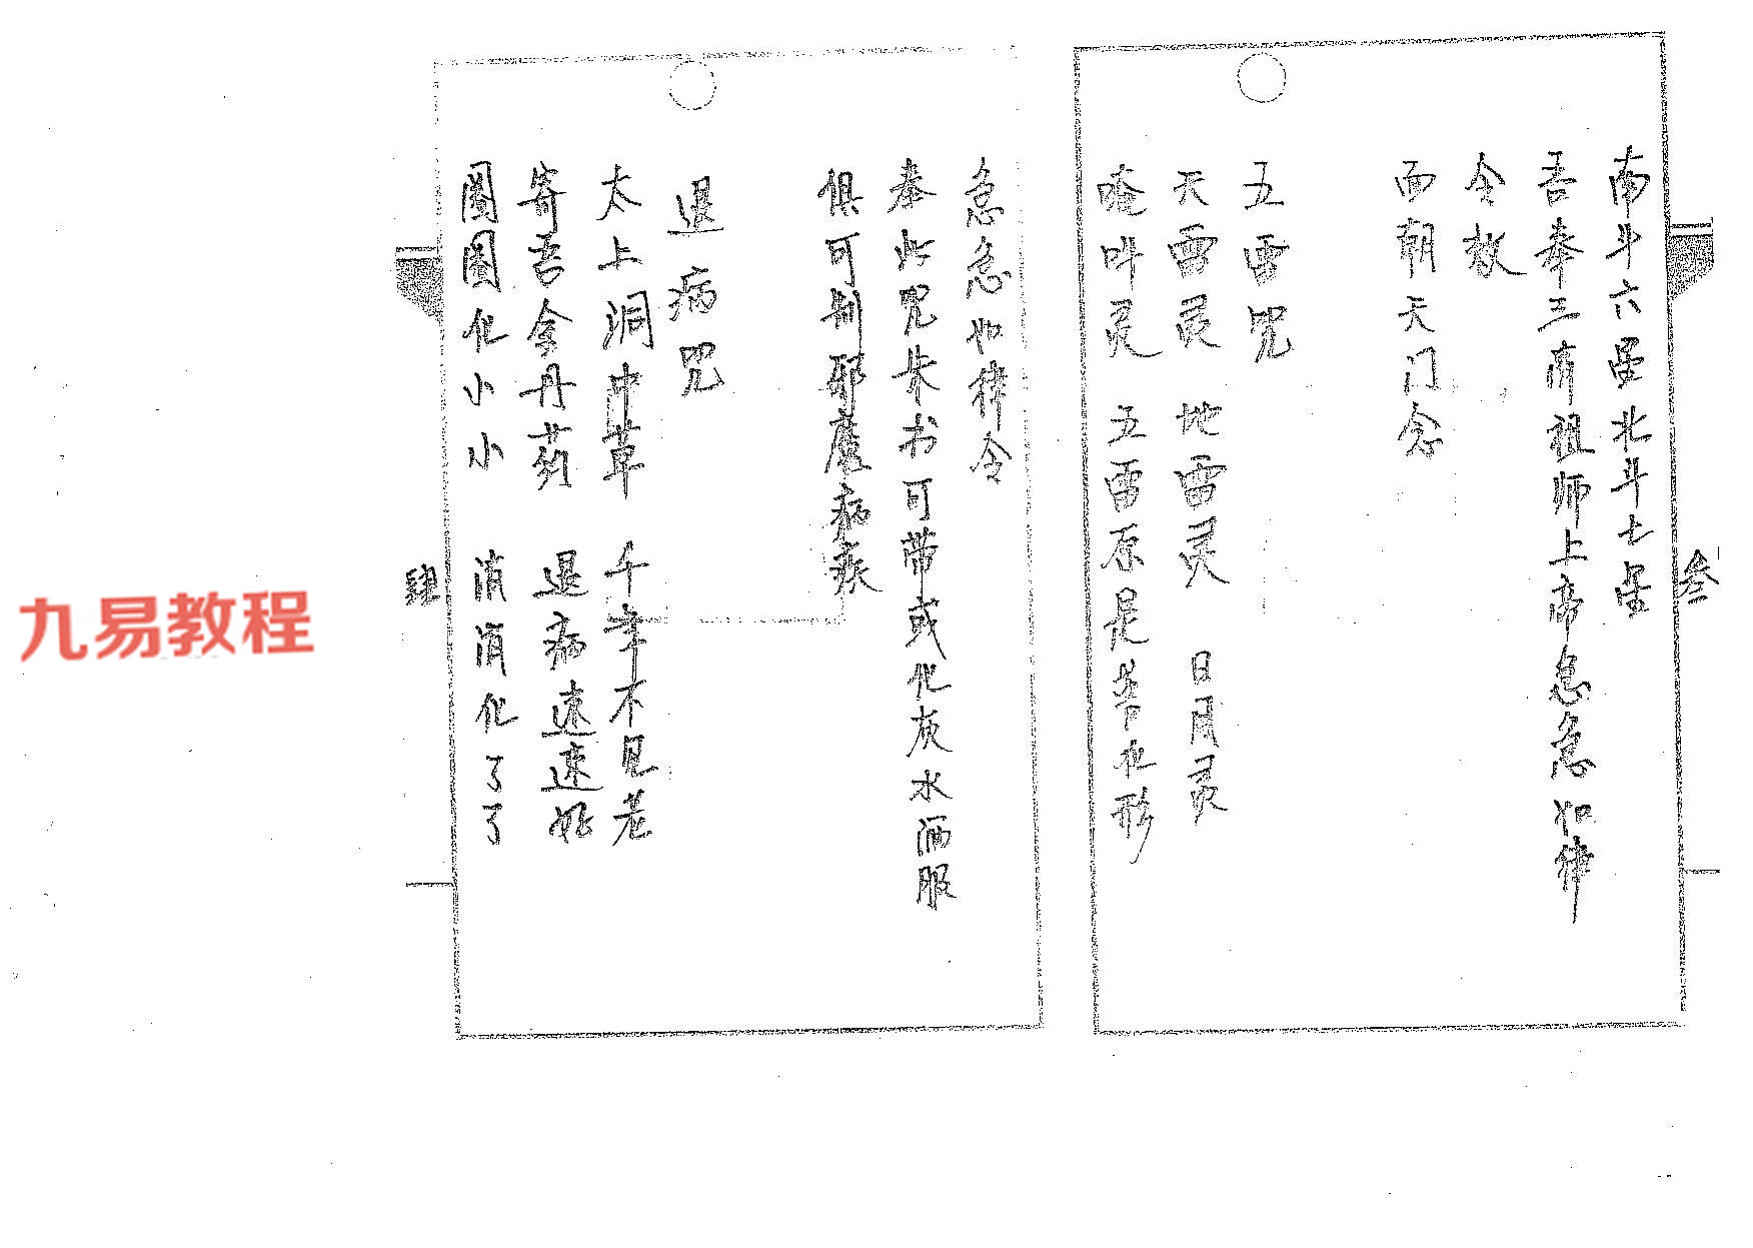 南斗六星北斗七星
吾奉三清祖师上帝急急如律
令敕
面朝天门念
五雷咒
天雷灵 地雷灵 日月灵
唵吽灵 五雷原是 化形
叁
急急如律令
奉此咒朱书可带或化灰水洒服
俱可制邪魔病疾
退病咒
太上洞中草 千年不见老
寄吾拿丹药 退病速速好
圈圈化小小 消消化了了
肆
九易教程